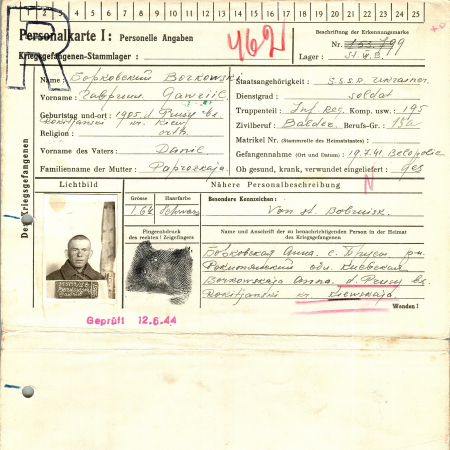 1 2 3 4 5 6 7 8 9 10 11 12 13 14 15 16 17 18 19 20 21 22 23 24 25
R
Personalkarte I: Personelle Angaben
Kriegsgefangenen-Stammlager:
462
Beschriftung der Erkennungsmarke
Nr. 99
Lager:
Des Kriegsgefangenen
Name: Борковский Borkowski
Vorname: Гавриил Gawriil
Geburtstag und -ort: 1905
Religion: orth
Vorname des Vaters: Danil
Familienname der Mutter:
Staatsangehörigkeit: S.S.S.R. Ukrainer
Dienstgrad: Soldat
Truppenteil: Inf. Reg. Komp. usw.: 195
Zivilberuf: Berufs-Gr.: 15a
Matrikel Nr. (Stammrolle des Heimatstaates):
Gefangennahme (Ort und Datum): 19.7.41. Belopolie
Ob gesund, krank, verwundet eingeliefert: ges
N
Lichtbild
Nähere Personalbeschreibung
Grösse
Haarfarbe
Besondere Kennzeichen:
schwarz
Von
Fingerabdruck
des rechten! Zeigefingers
Name und Anschrift der zu benachrichtigenden Person in der Heimat
des Kriegsgefangenen
Борковская Анна с.
обл. Киевская
Borkowskaja Anna
Kiewskaja
Wenden!
Geprüft 12.6.44